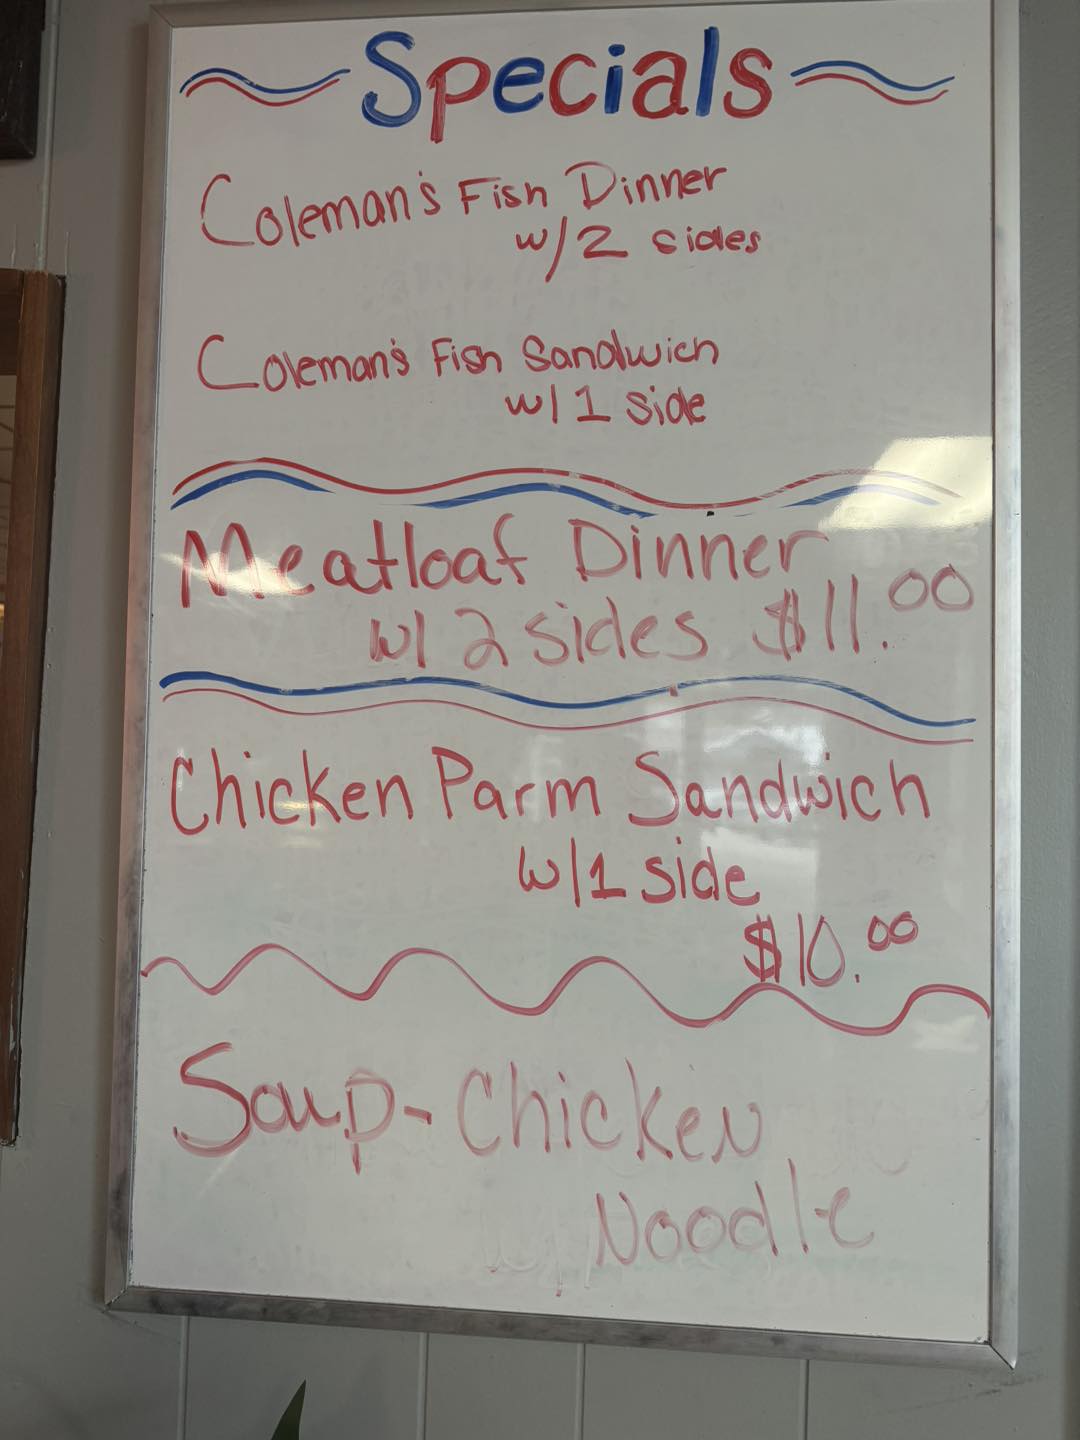 Specials
Coleman's Fish Dinner
w/2 sides
Coleman's Fish Sandwich
w/1 side
Meatloaf Dinner
w/2 sides $11.00
Chicken Parm Sandwich
w/1 side
$10.00
Soup-Chicken
Noodle